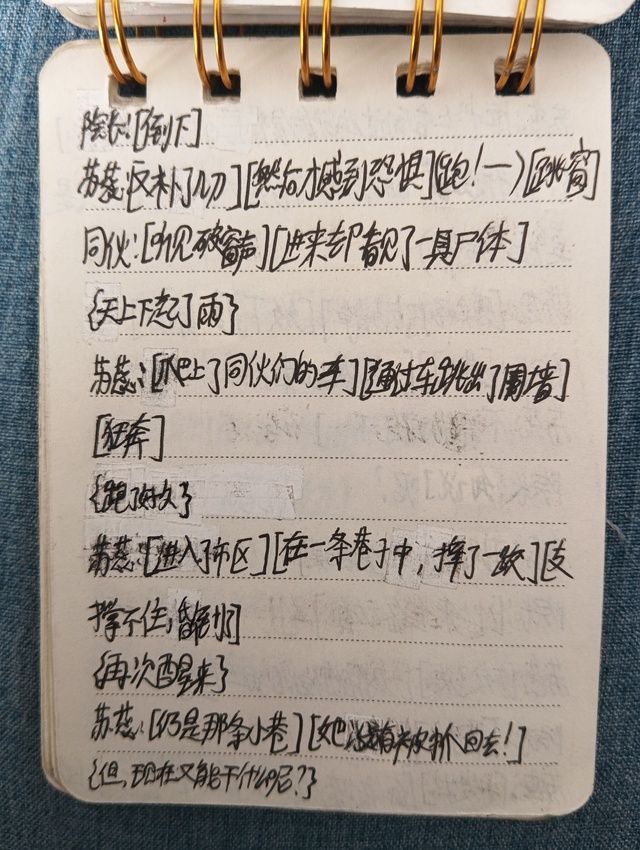 院长:[倒下]
苏蕊:[又补了几刀][然后才感到恐惧][跑!一)[跳窗]
同伙:[听见破窗声][进来却看见了一具尸体]
{天上下起了雨}
苏蕊:[爬上了同伙们的车][通过车跳出了围墙]
[狂奔]
{跑了好久}
苏蕊:[进入了市区][在一条巷子中,摔了一跤][支
撑不住,昏倒了]
{再次醒来}
苏蕊:[仍是那条小巷][她没有被抓回去!]
{但,现在又能干什么呢?}